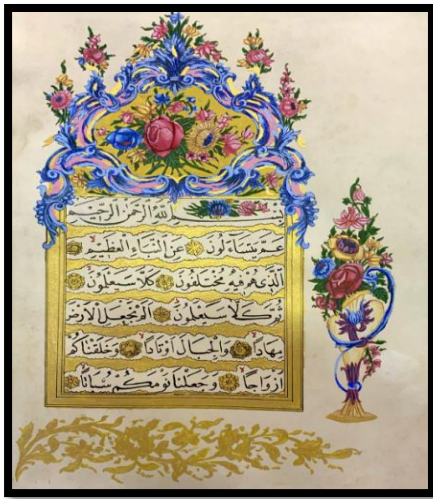 بِسْمِ اللّٰهِ الرَّحْمٰنِ الرَّحِيمِ
عَمَّ يَتَسَاءَلُونَ عَنِ النَّبَإِ الْعَظِيمِ
الَّذِي هُمْ فِيهِ مُخْتَلِفُونَ كَلَّا سَيَعْلَمُونَ
ثُمَّ كَلَّا سَيَعْلَمُونَ أَلَمْ نَجْعَلِ الْأَرْضَ
مِهَادًا وَالْجِبَالَ أَوْتَادًا وَخَلَقْنَاكُمْ
أَزْوَاجًا وَجَعَلْنَا نَوْمَكُمْ سُبَاتًا